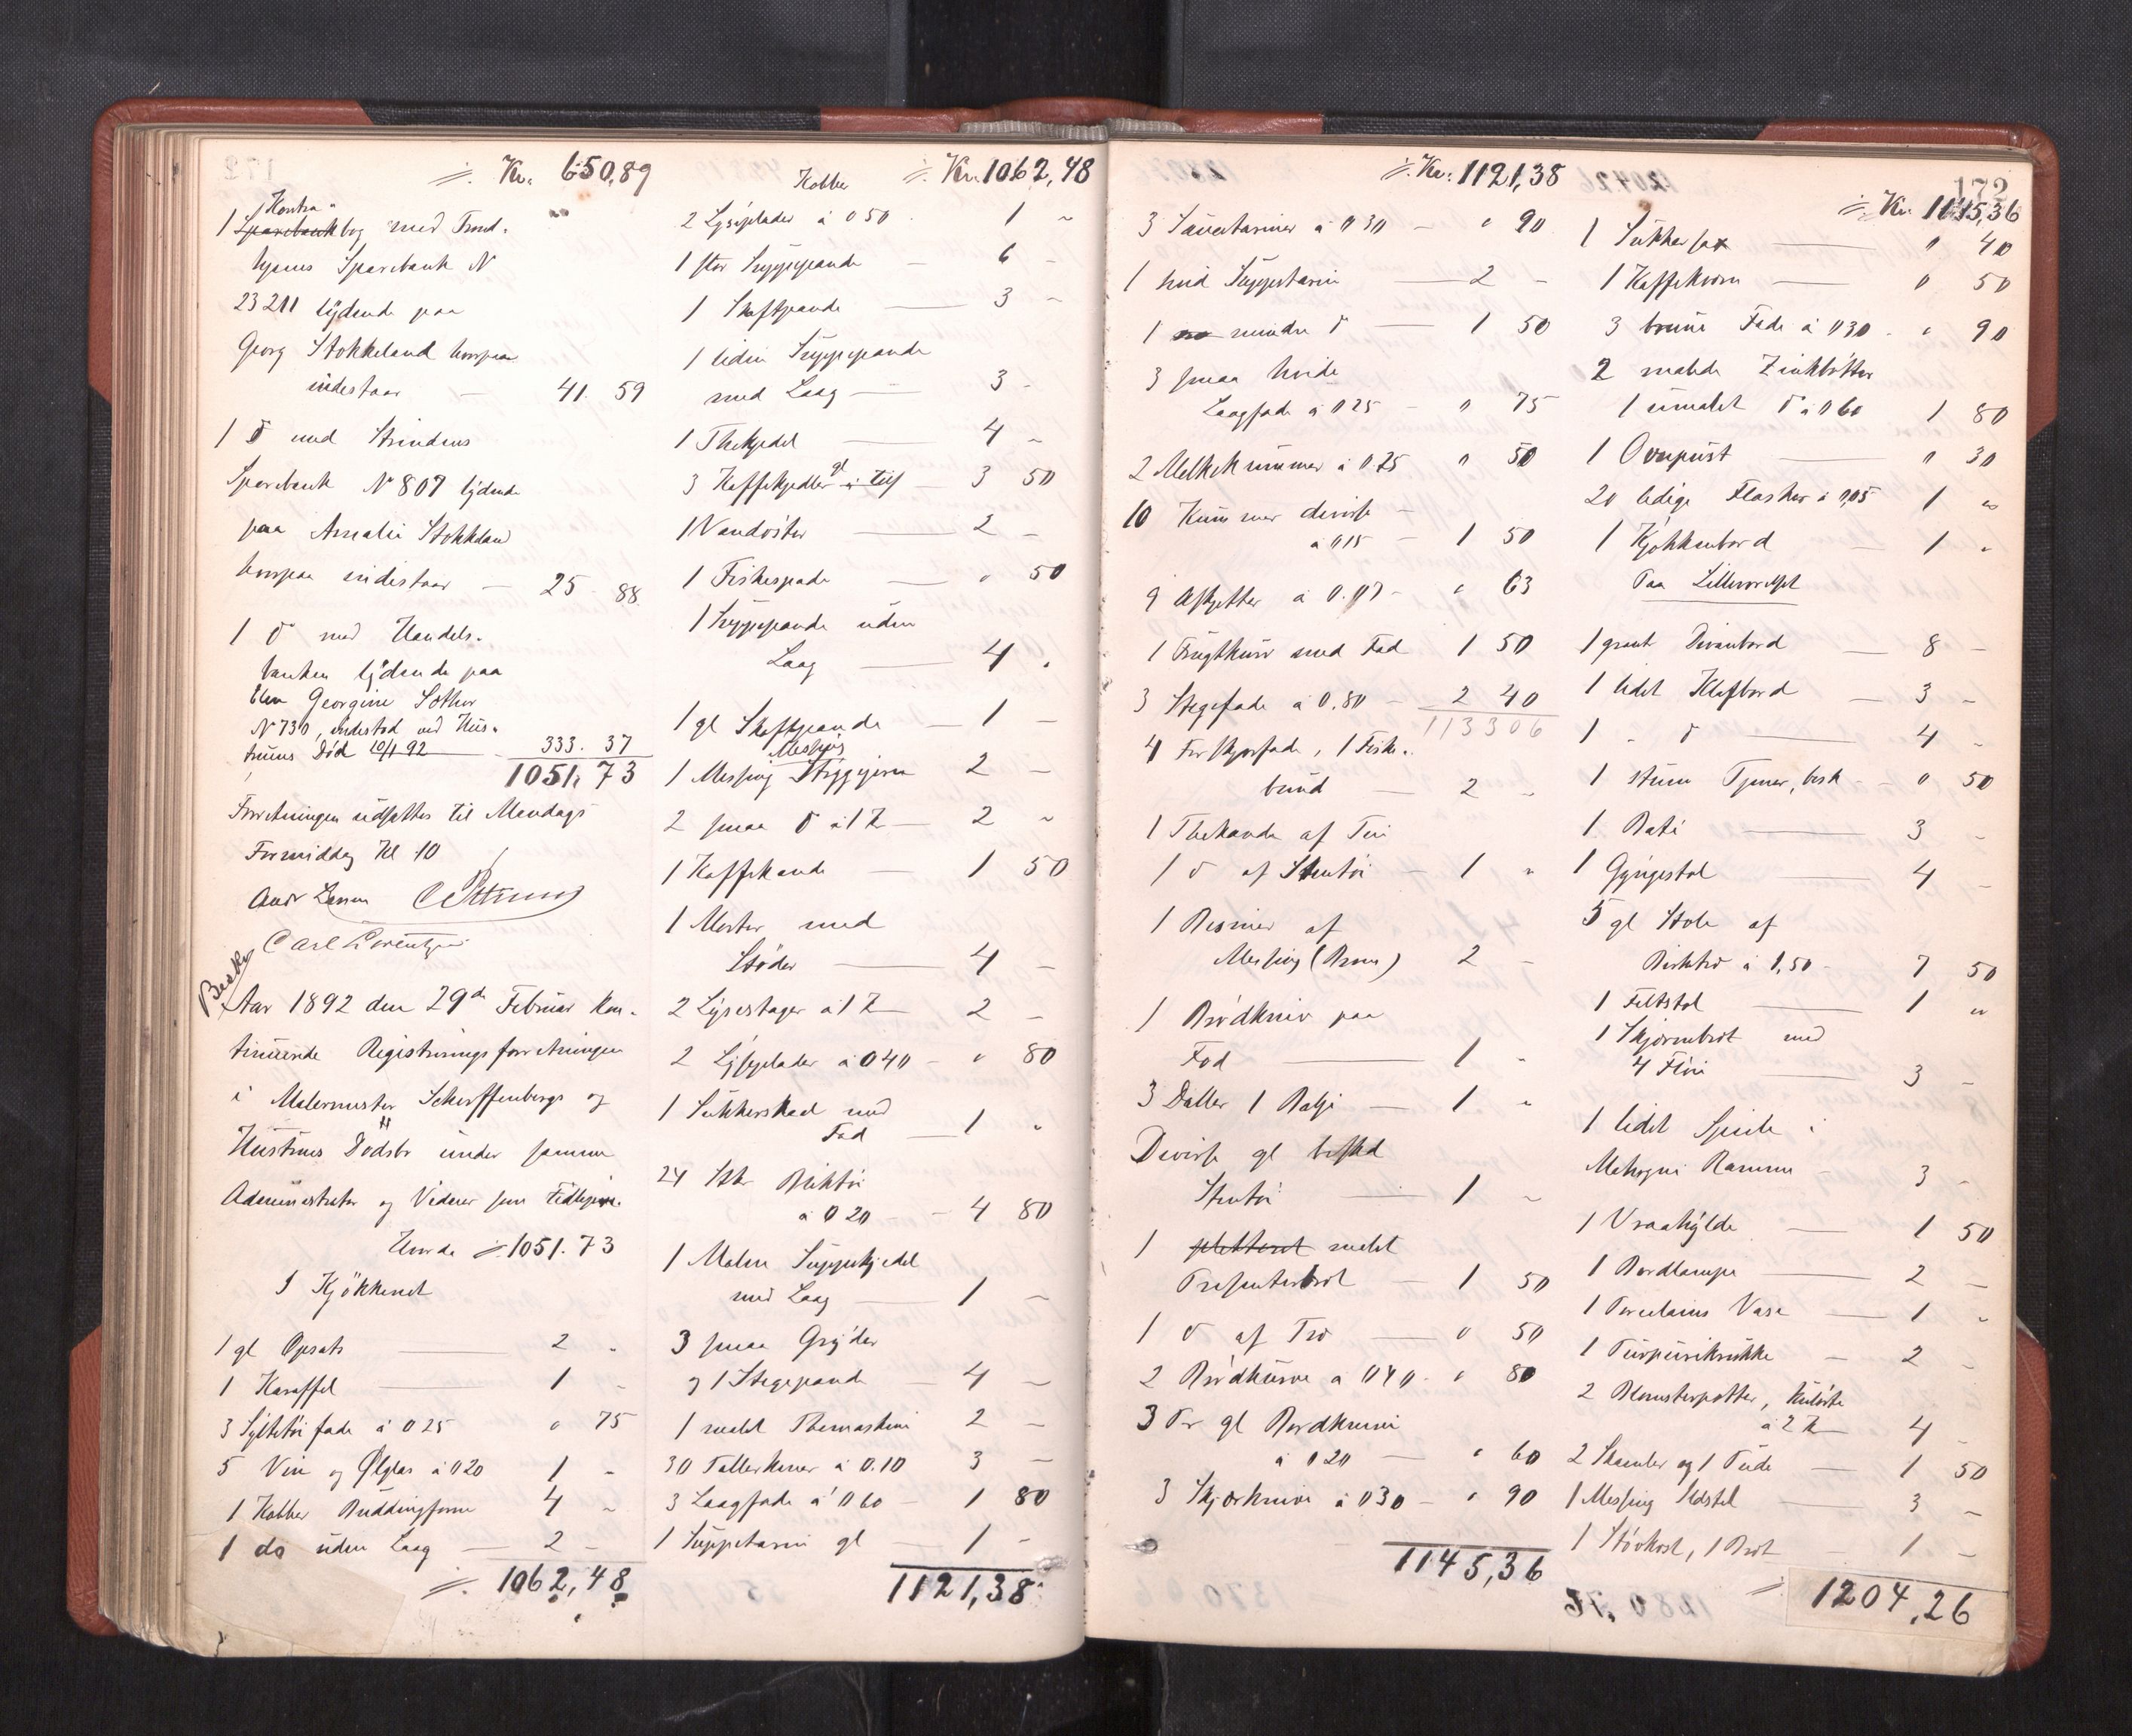 Kr. 650,89
Kontra-
1 Sparebankbog med Trond-
hjems Sparebank N
23211 lydende paa
Georg Stokkeland hvorpaa
indestaar 41. 59
1 do med Strindens
Sparebank No 807 lydende
paa Amalie Stokkeland
hvorpaa indestaar — 25 88
1 do med Handels-
banken lydende paa
Elen Georgine Sother
No 730, indestod ved Hus-
truens Död 10/1 92 333. 37
1051,73
Forretningen udsættes til Mandags
Formiddag Kl 10
Andr Larsen
Carl Lorentzen
Aar 1892 den 29de Februar kon-
tinuerede Registreringsforretningen
i Malermester Scherffenbergs og
Hustrues Dödsbo under samme
Administrator og Vidner som tidligere.
Overde 1051.73
I Kjökkenet
1 gl Opsats 2 -
1 Karaffel 1 -
3 Syltetöifade á 0 25 " 75
5 Vin og Ølglas á 0 20 1 -
1 Kobber Buddingform 4 -
1 do uden Laag 2 -
1062,48
Kobber Kr. 1062,48
2 Lyseplader á 0 50 1 -
1 stor Suppepande 6 -
1 Skaftpande 3 -
1 liden Suppepande
med Laag 3 -
1 Thekjedel 4 -
3 Kaffekjedler gl 3 50
1 Vandöster 2 -
1 Fiskespade " 50
1 Suppepande uden
Laag 4 .
1 gl Skaftpande 1 -
Messing
1 Messing Strygejern 2 -
2 smaa do á 1 K 2 -
1 Kaffekande 1 50
1 Morter med
Stöder 4 -
2 Lysestager á 1 K 2 -
2 Lyseplader á 0 40 " 80
1 Sukkerskaal med
Fad 1 "
24 Stkr Bliktöi
á 0 20 4 80
1 Malm Suppekjedel
med Laag 1 -
3 smaa Gryder
og 1 Stegepande 4 -
1 malet Themaskine 2 -
30 Tallerkener á 0.10 3 -
3 Laagfade á 0 60 1 80
1 Suppeterrin gl 1 -
1121,38
Kr. 1121,38
3 Sauceteriner á 0 30 " 90
1 hvid Suppeterrin 2 -
1 mindre do 1 50
3 smaa hvide
Laagfade á 0 25 0 75
2 Melkekummer á 0.25 0 50
10 Kummer diverse
á 0 15 1 50
9 Asjetter á 0.07 " 63
1 Frugtkurv med Fad 1 50
3 Stegefade á 0.80 2 40
113306
4 Forskjærfade, 1 Fiske-
bund 2 -
1 Thekande af Tin
1 do af Stentöi 1 "
1 Bismer af
Messing (Brons) 2 -
1 Brödkniv paa
Fod 1 -
3 Baller 1 Balje 1 "
Diverse gl beskad
Stentöi 1 -
1 pletteret malet
Presenterbret 1 50
1 do af Træ 0 50
2 Brödkurve á 0 40 " 80
3 Par gl Bordknive
á 0 20 " 60
3 Skjærknive á 0 30 " 90
1145,36
172
Kr. 1145,36
1 Sukkersax 0 40
1 Kaffekværn 0 50
3 brune Fade á 0 30 " 90
2 malede Zinkbötter
1 umalet do á 0 60 1 80
1 Ovnpust 0 30
20 ledige Flasker á 0,05 1 "
1 Kjökkenbord 1 "
Paa Lilleværelset
1 grønt Divanbord 8 -
1 lidet Klafbord 3 -
1 - do 4 -
1 stum Tjener, besk 0 50
1 Buffé 3 -
1 Gyngestol 4 -
5 gl Stole af
Birketræ á 1,50 7 50
1 Feltstol 1 "
1 Skjærmbret med
4 Flöie 3 -
1 lidet Speile i
Mahogni Ramme 3 -
1 Vraahylde 1 50
1 Bordlampe 2 -
1 Porcelains Vase 1 -
1 Purpurikrukke 2 -
2 Blomsterpotter, kulörte
á 2 K 4 -
2 Skamler og 1 Pude 1 50
1 Messing Ildstel 3 -
1 Stövkost, 1 Bret 1 -
1204,26